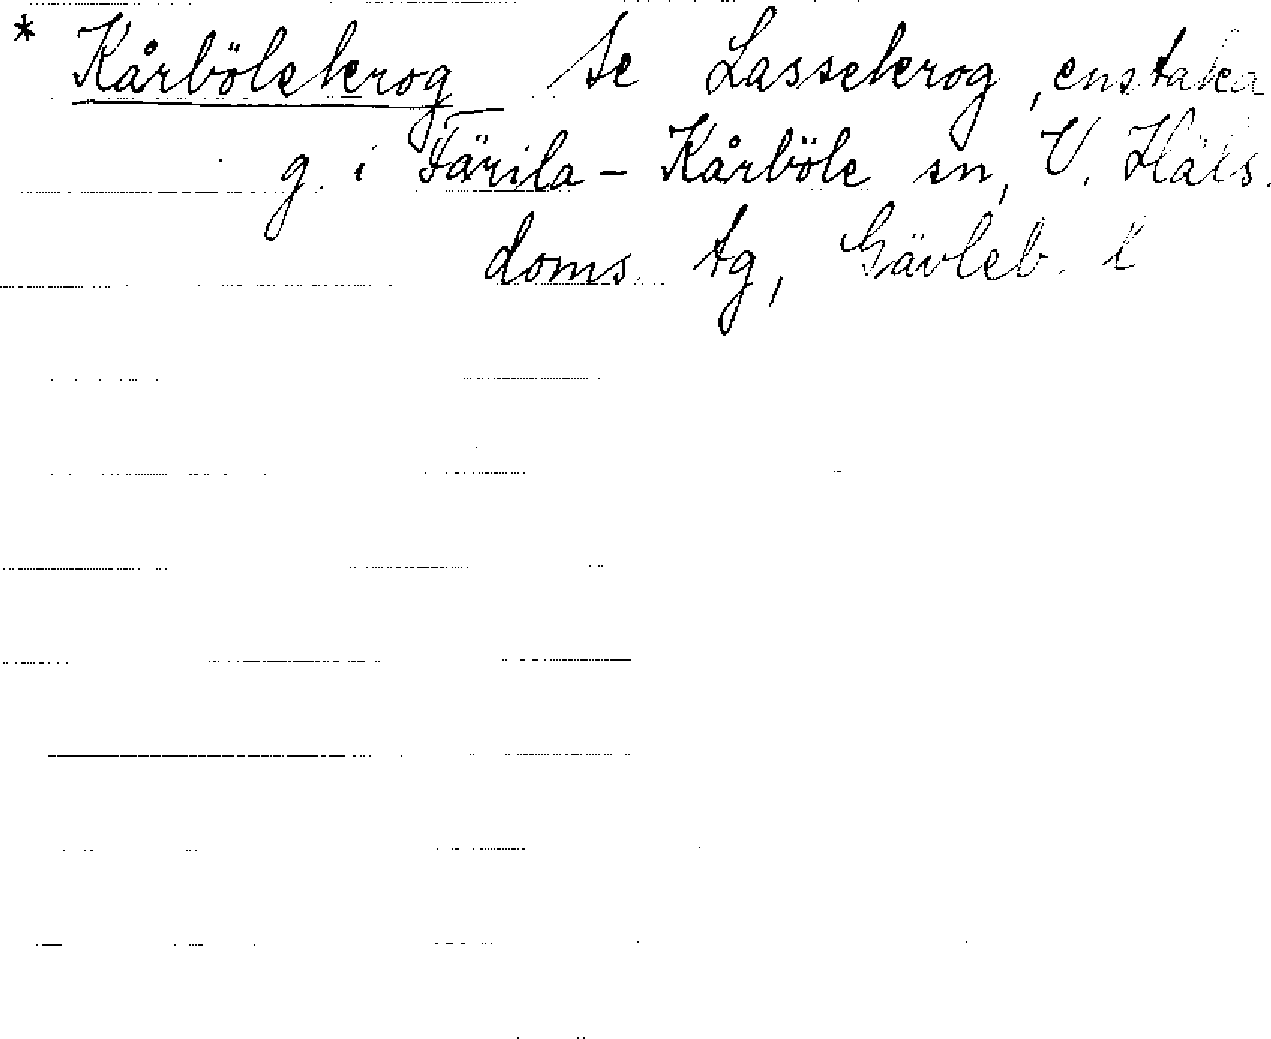 * Kårbölekrog se Lassekrog, enstaka
g. i Färila - Kårböle sn, V. Häls.
doms. tg, Gävleb. l